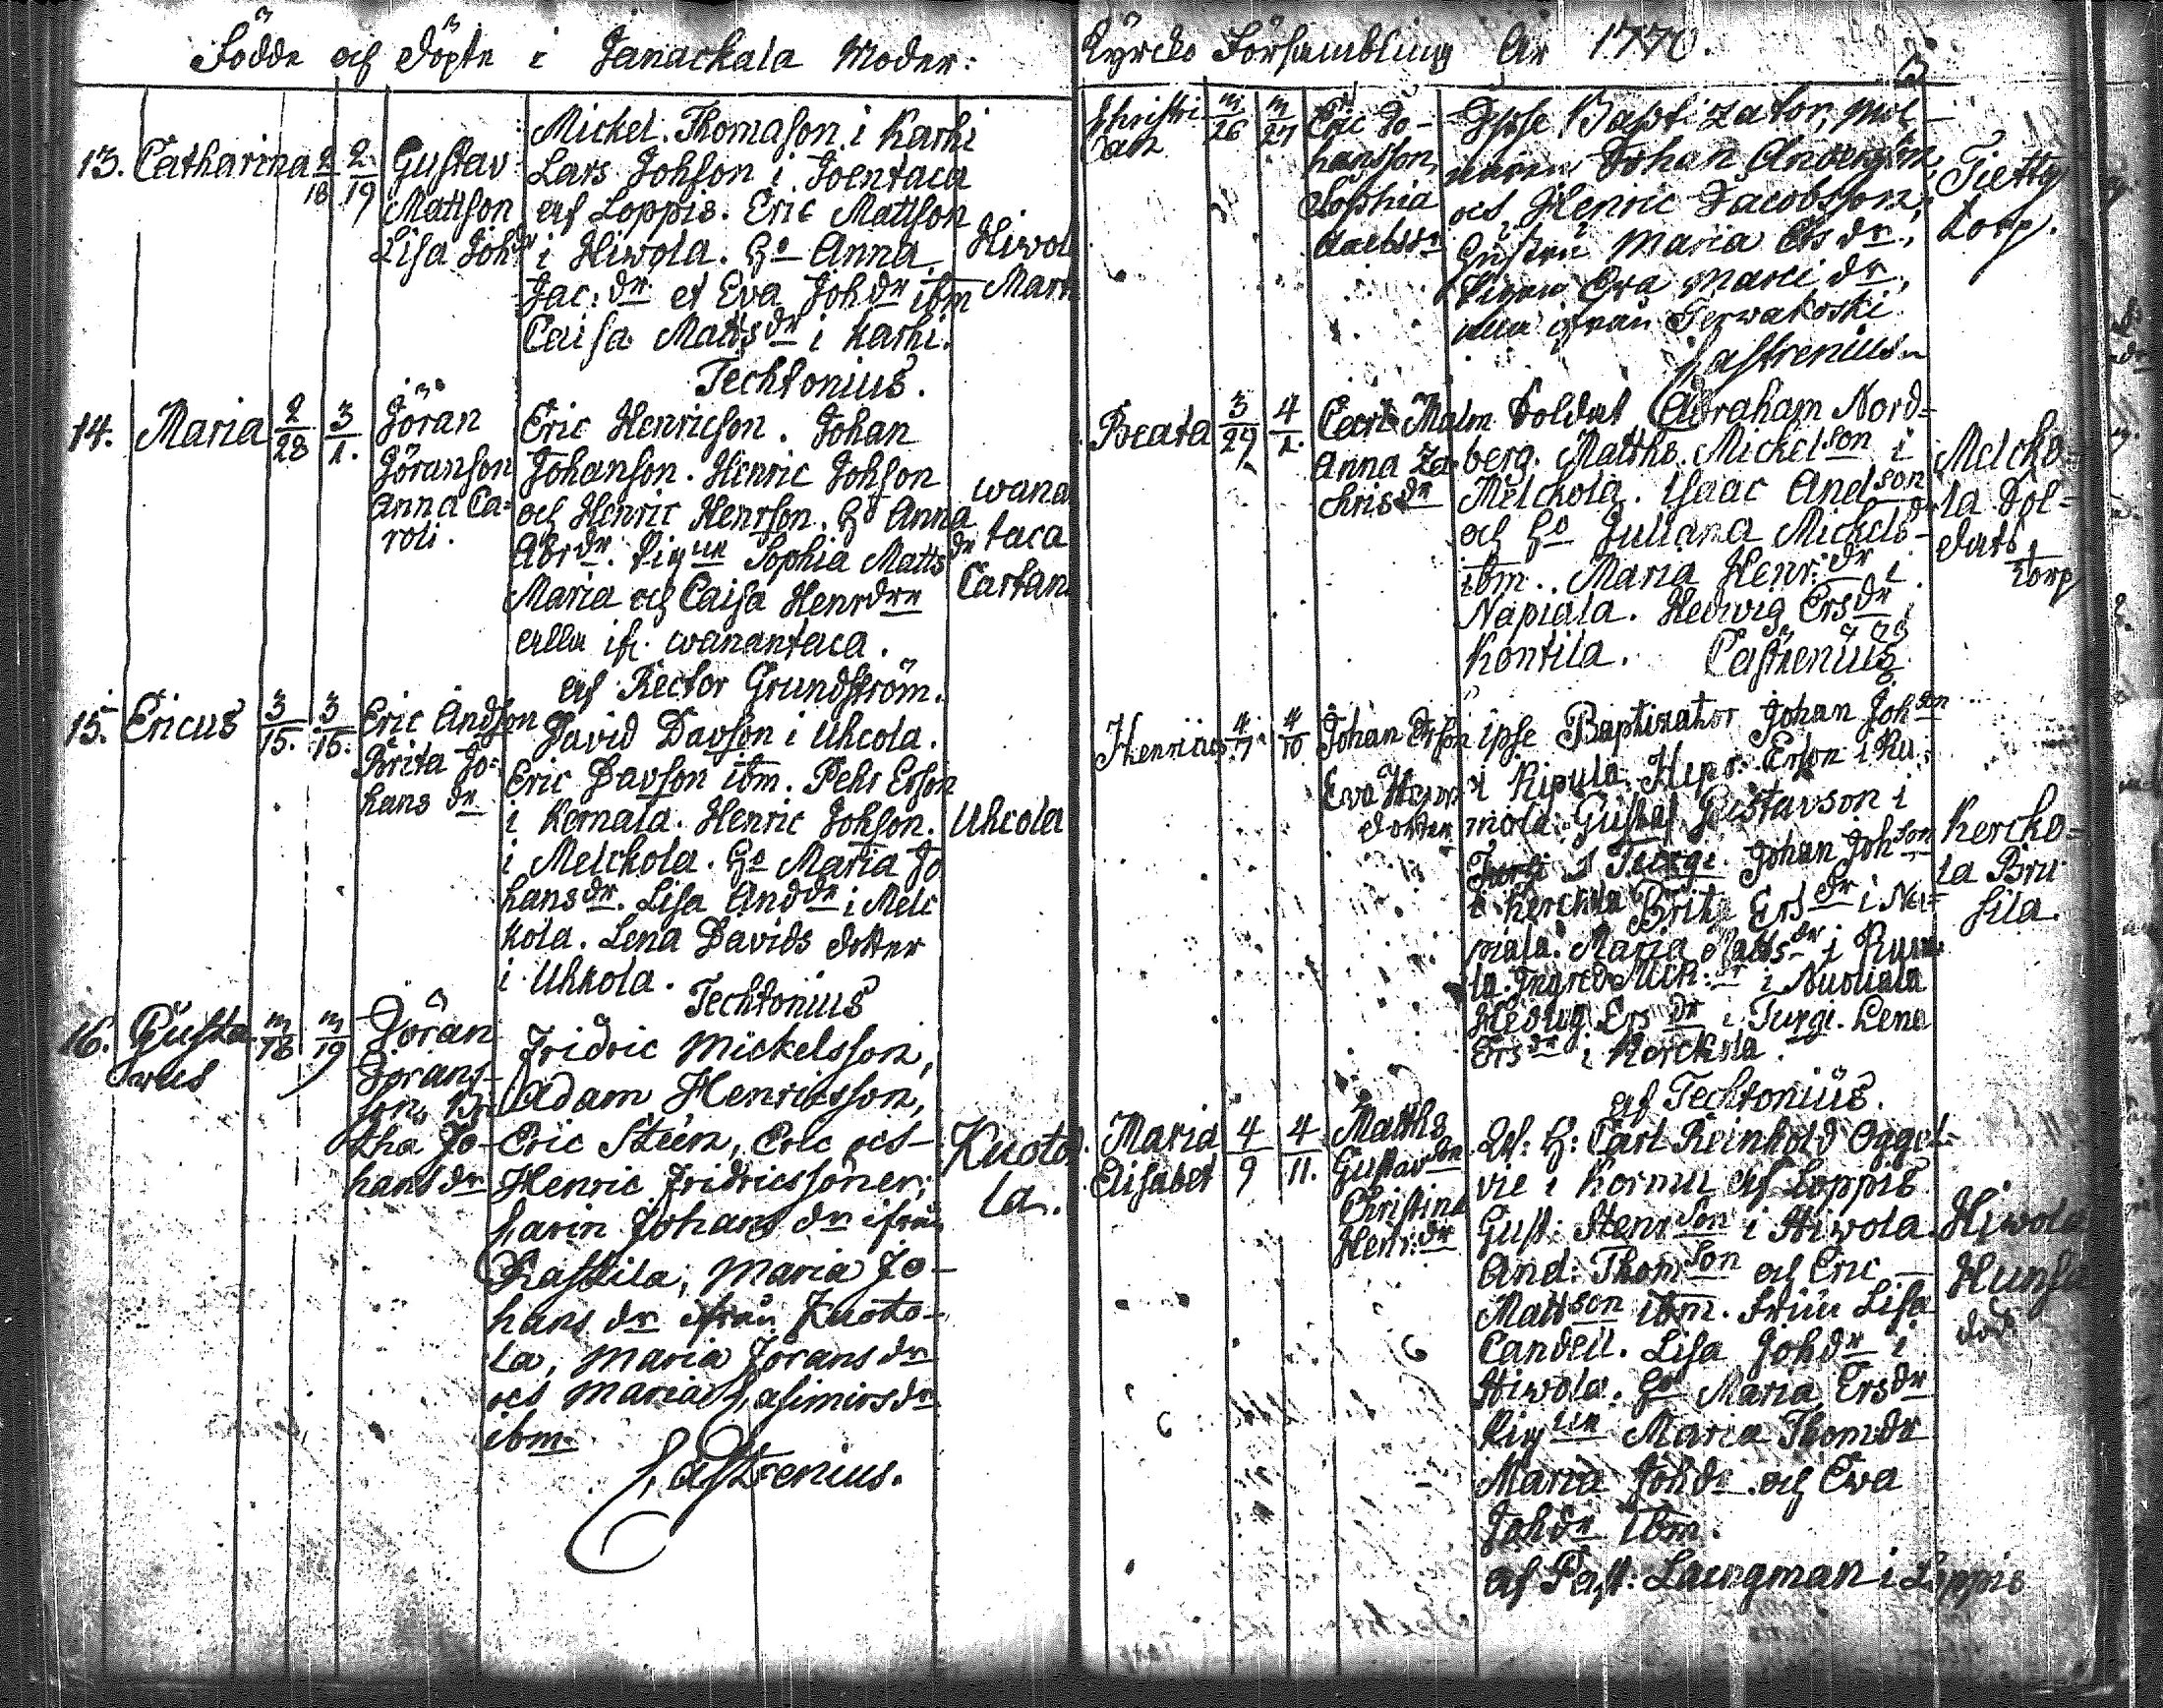 Födde och Döpte i Janackala Moder:
13. Catharina 2/18 2/19
Gustav
Mattson
Lisa Joh dr
Mickel Thomason i Karhi
Lars Johson i Joentaca
af Loppis. Eric Mattson
i Hiwola. H:o Anna
Jac: dr et Eva Joh dr ibm
Caisa Matts dr i Karhi.
Techtonius.
Hiwol
Mart
14. Maria 2/28 3/1.
Jöran
Jöranson
Anna Ca-
roli.
Eric Henricson. Johan
Johanson. Henric Johson
och Henric Henrson. H:o Anna
Abr dr. Pig Sophia Matts dr
Maria och Caisa Henr drr
alla ifr. wanantaca.
af Rector Grundström.
wana
taca
Cartan
15. Ericus 3/15. 3/15.
Eric Andson
Brita Jo-
hans dr
David Davson i Uhcola.
Eric Davson ibm. Pehr Erson
i Kernala. Henric Johson.
i Melckola. H:o Maria Jo
hans dr. Lisa And dr i Melc
kola. Lena Davids dotter
i Uhkola.
Techtonius
Uhcola
16. Gusta
vus m/18 m/19
Jöran
Jörans-
son,
tha Jo-
hans dr
Fridric Mickelsson,
Adam Henricsson,
Eric Steen, Eric och
Henric Fridricssöner;
Carin Johans dr ifrån
Rastila, Maria Jo-
hans dr ifrån Kuoto-
la, Maria Jörans dr
och Maria Casimirs dr
ibm.
Castrenius.
Kuoto
la.
Kyrcko Försambling År 1770.
Christi
m/26 m/27
Eric Jo-
hansson,
Sophia
Ipse Baptizator, mol
Johan
och Henric Jacobsson;
Hustru Maria Ers dr,
Pigan Eva Marci dr,
ifrån Terwakoski
Castrenius
Tietty
torp.
Beata 3/29 4/1.
Carl Malm
Anna Za
chris dr
Soldat Abraham Nord-
berg. Matths. Mickelson i
Melckola. Isaac Andson
och H:o Juliana Mickels dr
ibm. Maria Henr: dr i
Napiala. Hedvig Ers dr i
Kontila. Castrenius
Melcko-
la Sol-
dats
torp
Henricus 4/7 4/10
Johan Erson
Eva Henr
dotter
ipse Baptizator Johan Johson
i Ripula. Henr. Erson i Ru
mola. Gustaf Gustavson i
Turgi. Johan Johson
i Kerckola Brita Ers dr i Na-
piala. Maria Matts dr i
la. Ingred Mich: dr i
Hedvig Ers dr i Turgi. Lena
Ers dr i Kerckola.
af Techtonius.
Kercko-
la Bru
sila.
Maria
Elisabet 4/9 4/11.
Matths
Gustavson
Christina
Henr: dr
H: Carl Reinhold Oggel-
vie i Kormu af Loppis
Gust: Henrson i Hiwola
And: Thomson och Eric
Mattson ibm. Fru Lisa
Candell. Lisa Joh dr i
Hiwola. H:o Maria Ers dr
Pig Maria Thom dr
Maria Joh dr och Ewa
Joh dr ibm.
af Past: Laungman i Loppis
Hiwola